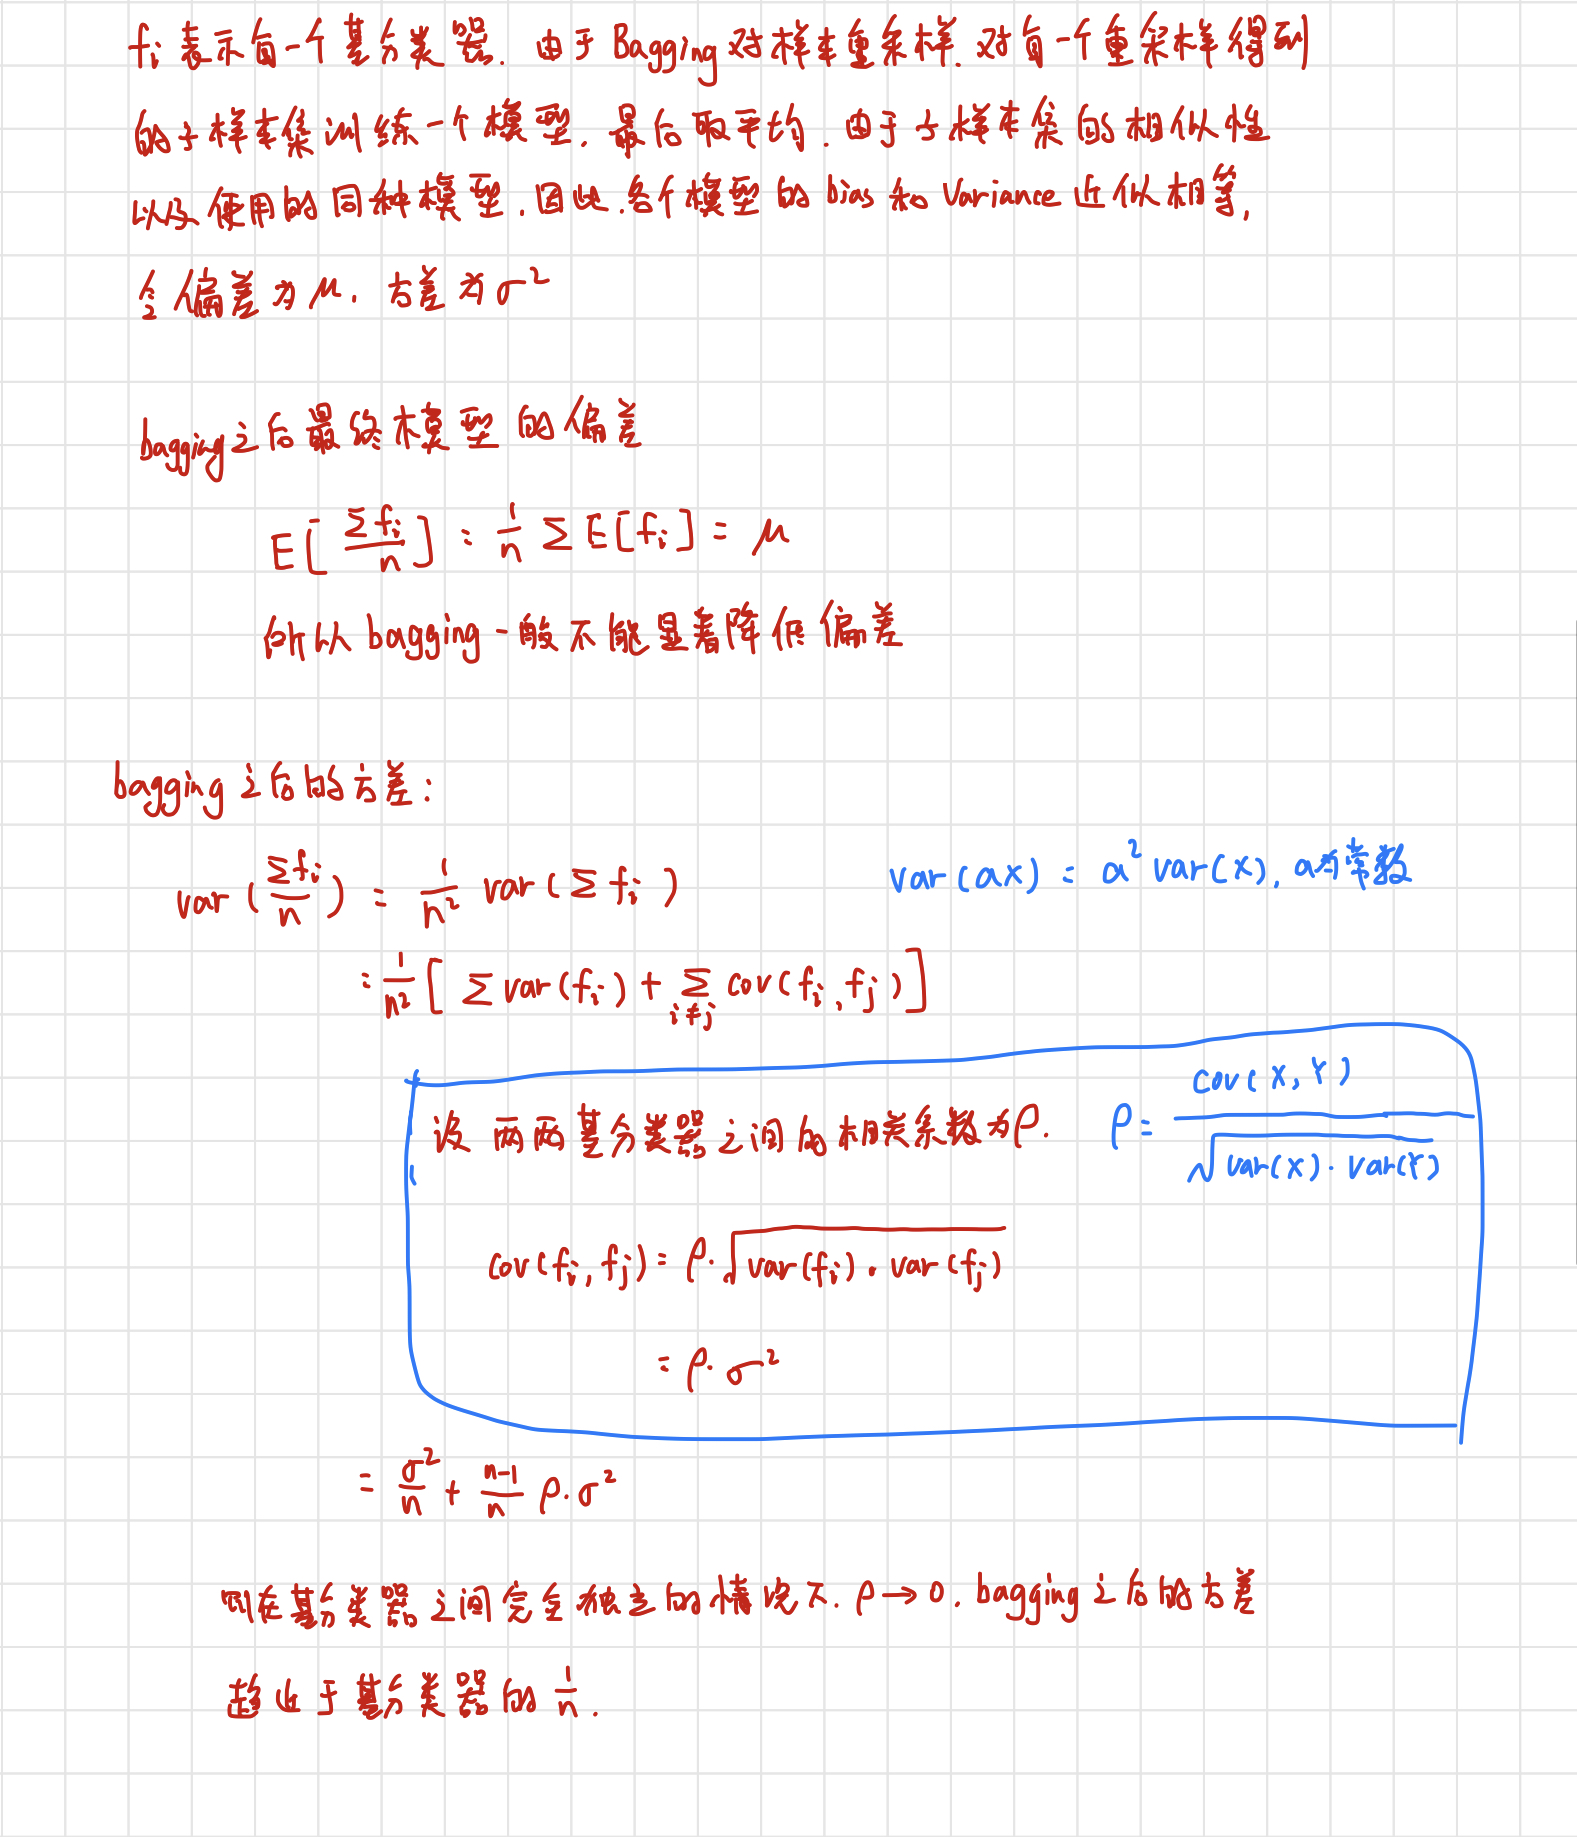 fᵢ 表示每一个基分类器. 由于 Bagging 对样本重采样. 对每一个重采样得到
的子样本集训练一个模型, 最后取平均. 由于子样本集的相似性
以及使用的同种模型, 因此, 各个模型的 bias 和 Variance 近似相等,
令偏差为 μ, 方差为 σ²
bagging之后最终模型的偏差
E[ Σfᵢ / n ] = 1/n Σ E[fᵢ] = μ
所以 bagging 一般不能显著降低偏差
bagging 之后的方差:
var ( Σfᵢ / n ) = 1/n² var ( Σ fᵢ )
var(ax) = a² var(x), a为常数
= 1/n² [ Σ var(fᵢ) + Σ_{i≠j} cov(fᵢ, fⱼ) ]
设 两两基分类器之间的相关系数为ρ.
ρ = cov(X, Y) / √(var(X) · var(Y))
cov(fᵢ, fⱼ) = ρ · √(var(fᵢ) · var(fⱼ))
= ρ · σ²
= σ²/n + (n-1)/n ρ · σ²
则在基分类器之间完全独立的情况下. ρ → 0. bagging 之后的方差
趋近于基分类器的 1/n.